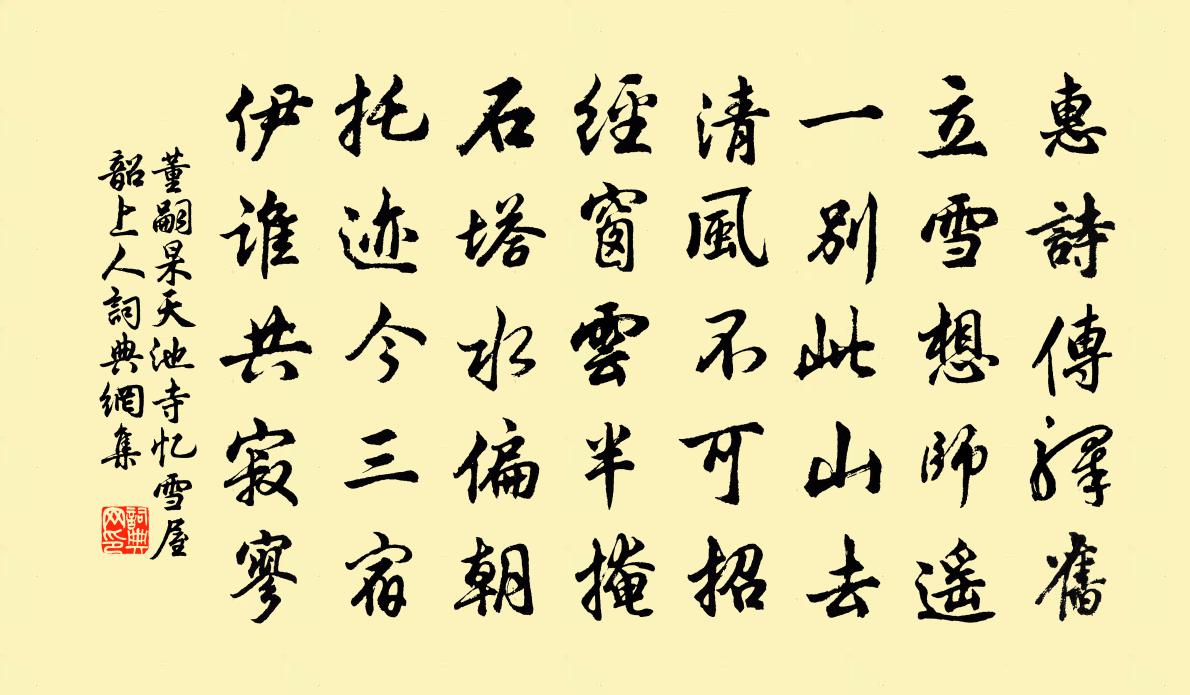 惠詩傳驛舊
立雪想師遥
一别此山去
清風不可招
經窗雲半掩
石塔水偏朝
托迹今三宿
伊誰共寂寥
董嗣杲天池寺忆雪屋
韶上人詞典網集
詞典
网印